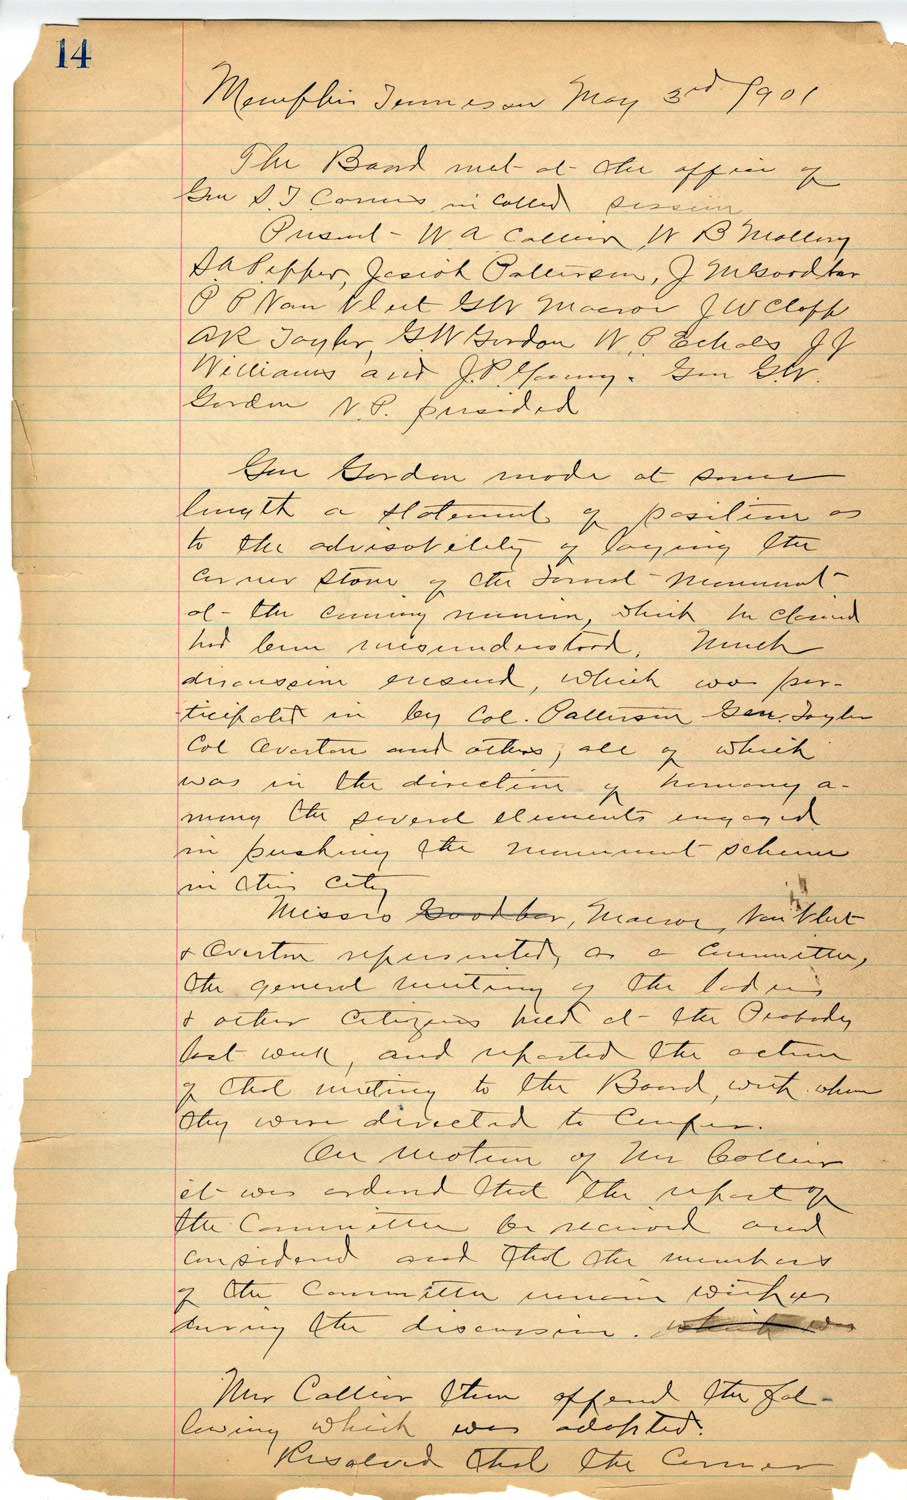 14
Memphis Tennessee May 3rd 1901
The Board met at the office of
Gen S. T. Carnes in called session
Present - W. A Collier, W B Mallory
S A Pepper, Josiah Patterson, J M Goodbar
P P Van Vleet G W Macrae J W Clapp
A R Taylor, G W Gordon W. P. Echols J J
Williams and J. P. Young. Gen G. W.
Gordon V. P. presided
Gen Gordon made at some
length a statement of position as
to the advisability of laying the
corner stone of the Forrest Monument
at the coming reunion, which he claimed
had been misunderstood. Much
discussion ensued, which was par-
ticipated in by Col. Patterson Gen. Taylor
Col Overton and others, all of which
was in the direction of harmony a-
mong the several elements engaged
in pushing the monument scheme
in this city
Messrs Goodbar, Macrae, Van Vleet
& Overton represented, as a committee,
the general meeting of the ladies
& other citizens held at the Peabody
last week, and reported the action
of that meeting to the Board, with whom
they were directed to confer.
On motion of Mr Collier
it was ordered that the report of
the Committee be received and
considered and that the members
of the Committee remain with us
during the discussion. which was
Mr Collier then offered the fol-
lowing which was adopted.
Resolved that the Corner